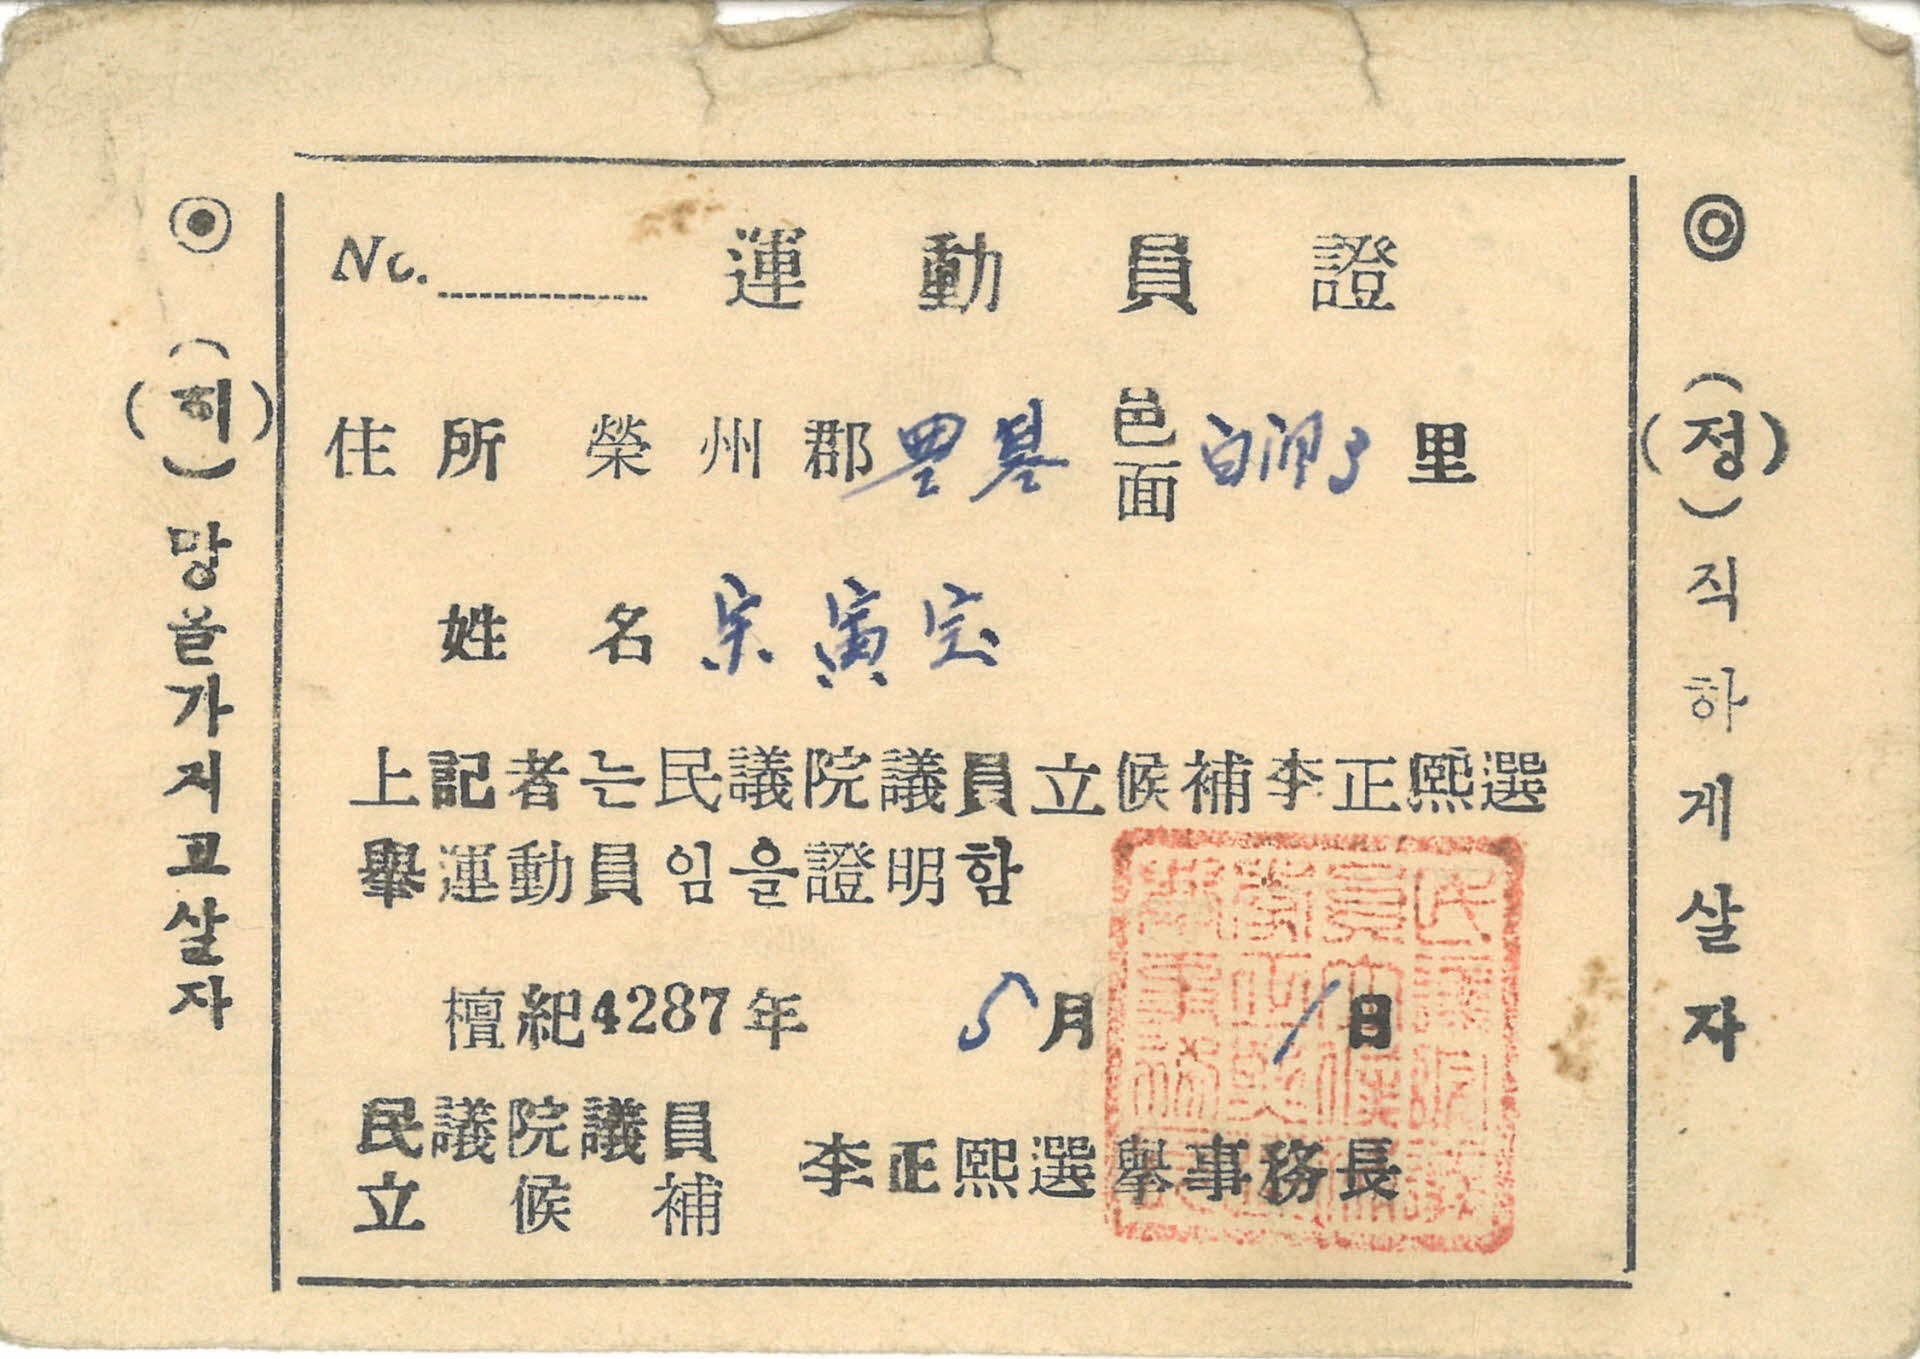 ◎ (정)직하게살자
No. 運動員證
住所 榮州郡 豊基 邑面 白洞 里
姓名 宋寅
上記者는民議院議員立候補李正熙選
擧運動員임을證明함
檀紀4287年 5月 1日
民議院議員
立候補
李正熙選擧事務長
◉ (히)망을가지고살자